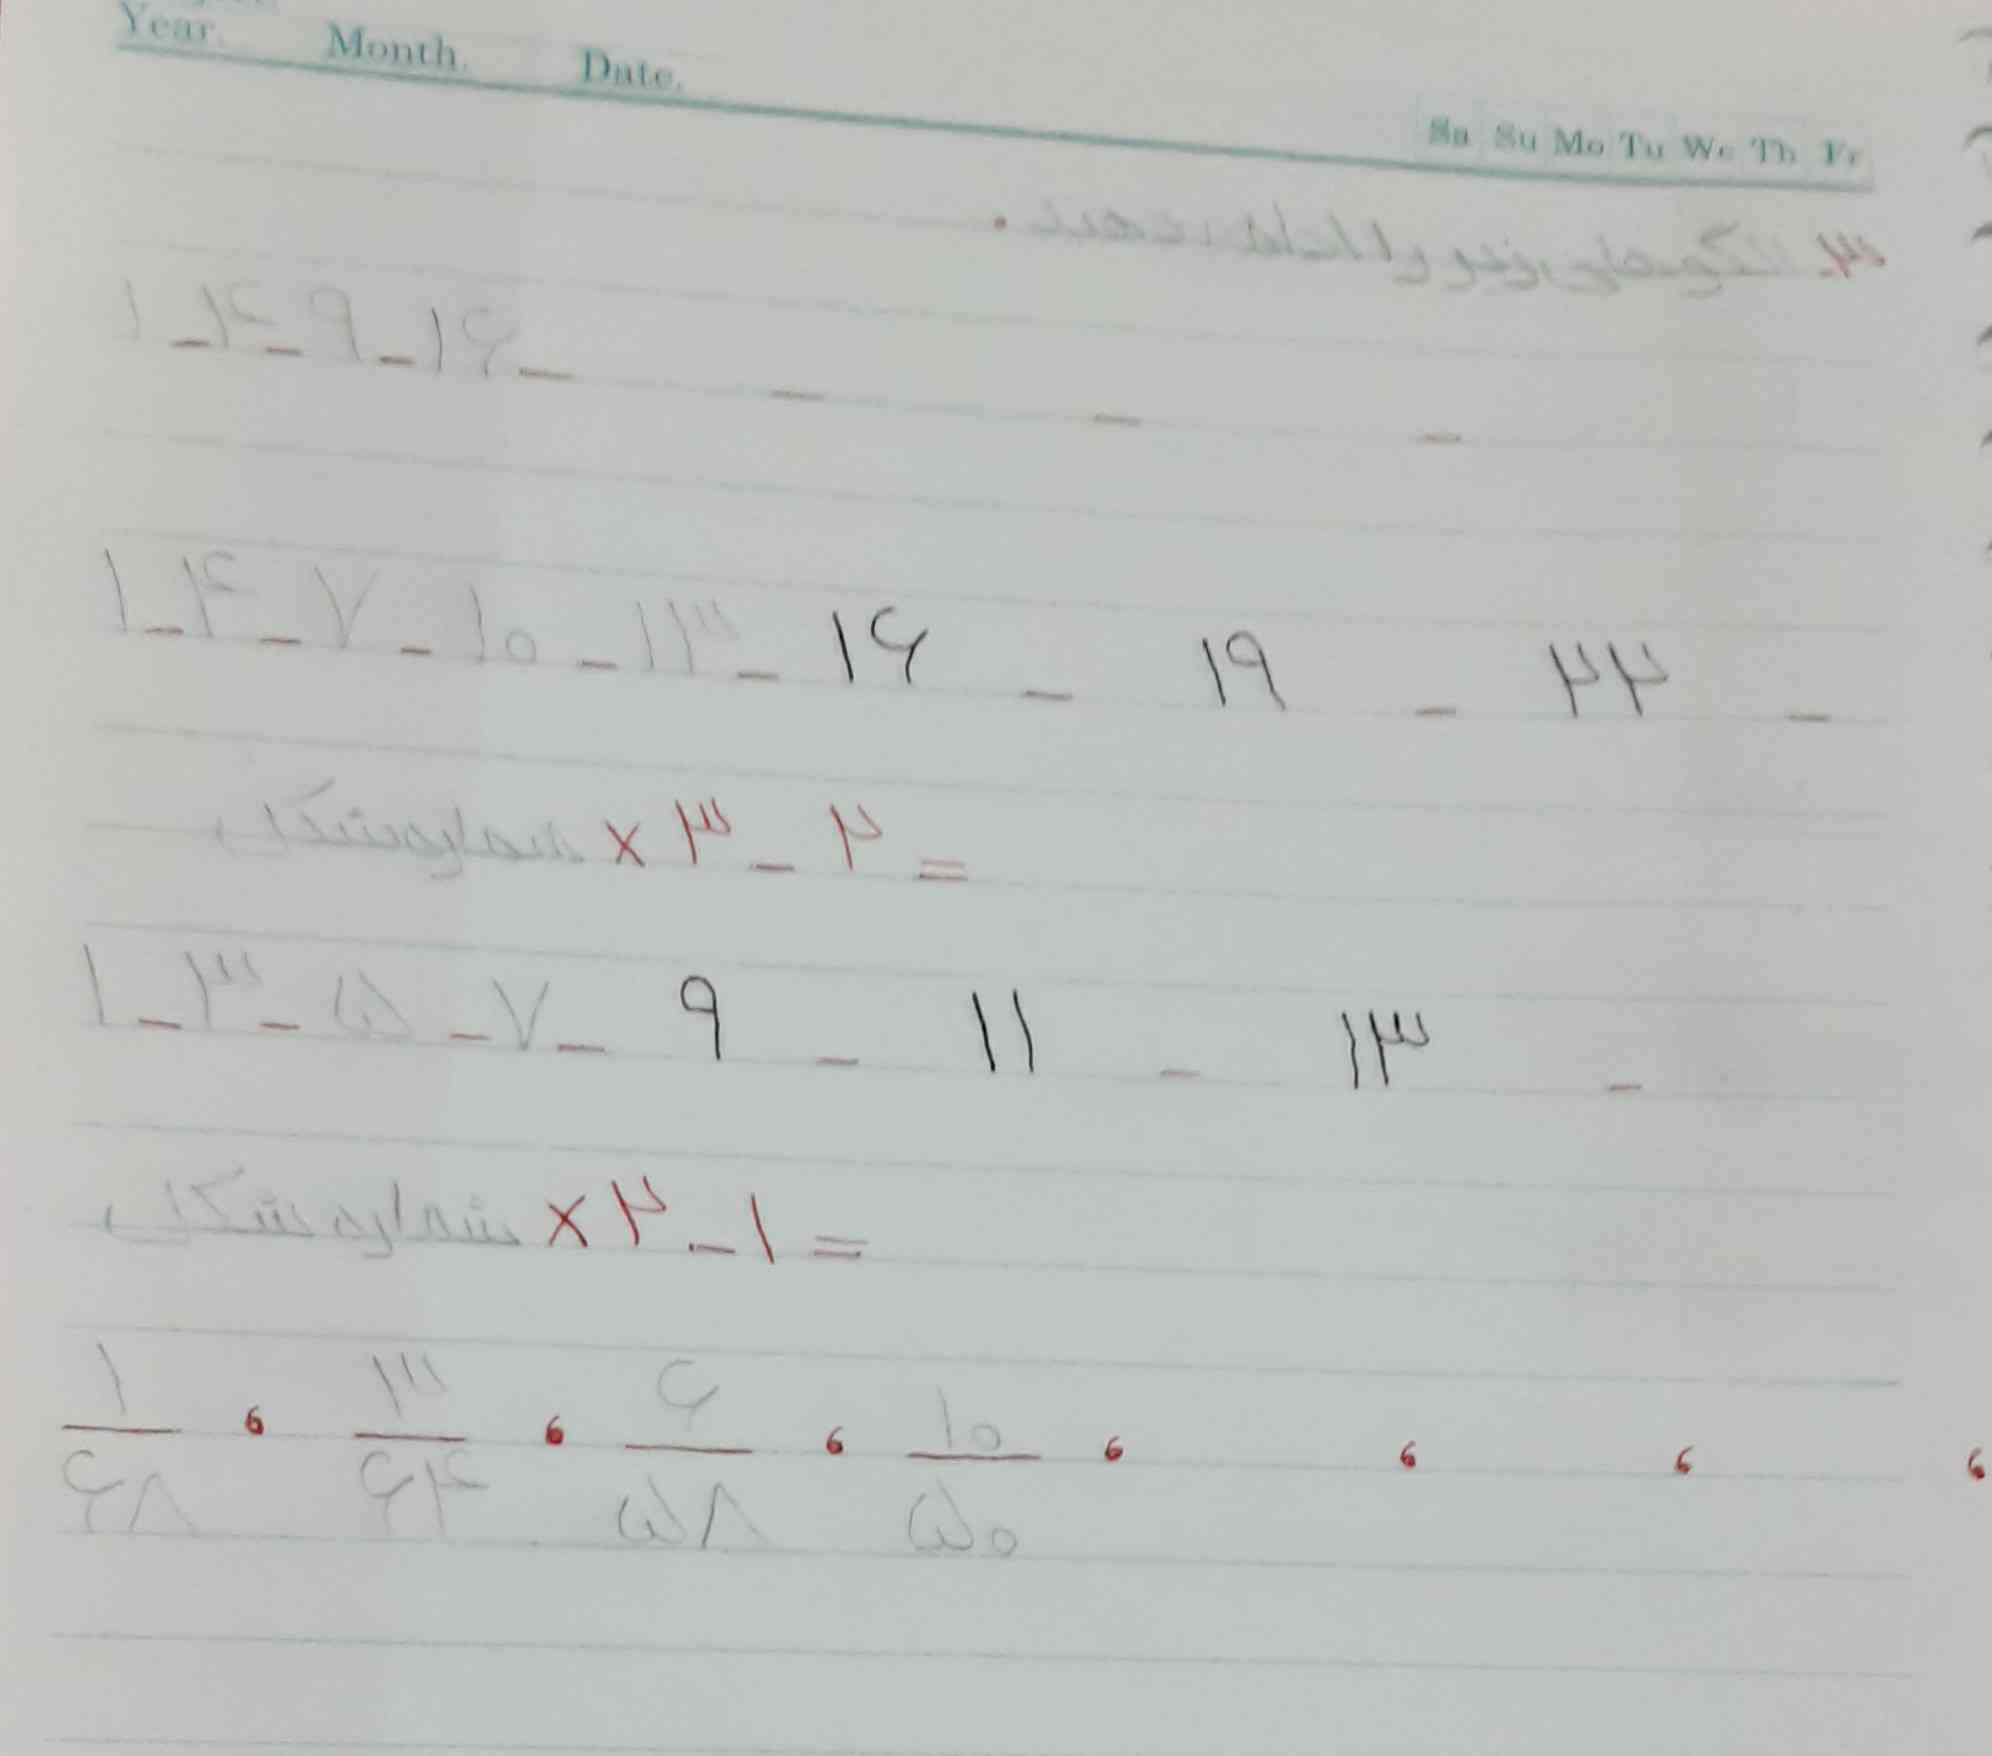 Year. Month. Date.
Sa Su Mo Tu We Th Fr
۳_ الگوهای زیر را ادامه دهید .
۱ _ ۴ _ ۹ _ ۱۶ _ _ _ _
۱ _ ۴ _ ۷ _ ۱۰ _ ۱۳ _ ۱۶ _ ۱۹ _ ۲۲ _
شماره شکل × ۳ _ ۲ =
۱ _ ۳ _ ۵ _ ۷ _ ۹ _ ۱۱ _ ۱۳ _
شماره شکل × ۲ _ ۱ =
۱/۶۸ ، ۳/۶۴ ، ۶/۵۸ ، ۱۰/۵۰ ، ، ، ،